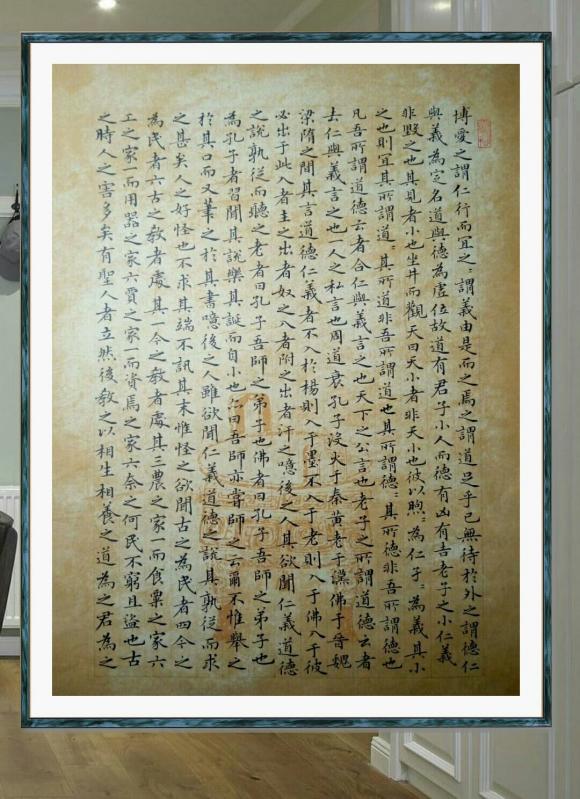 博愛之謂仁行而宜之〻謂義由是而之焉之謂道足乎已無待於外之謂德仁
與義為定名道與德為虛位故道有君子小人而德有凶有吉老子之小仁義
非毀之也其見者小也坐井而觀天曰天小者非天小也彼以煦〻為仁孑〻為義其小
之也則宜其所謂道〻其所道非吾所謂道也其所謂德〻其所德非吾所謂德也
凡吾所謂道德云者合仁與義言之也天下之公言也老子之所謂道德云者
去仁與義言之也一人之私言也周道衰孔子没火于秦黃老于漢佛于晉魏
梁隋之間其言道德仁義者不入於楊則入于墨不入于老則入于佛入于彼
必出于此入者主之出者奴之入者附之出者汙之噫後之人其欲聞仁義道德
之說孰從而聽之老者曰孔子吾師之弟子也佛者曰孔子吾師之弟子也
為孔子者習聞其說樂其誕而自小也亦曰吾師亦嘗師之云爾不惟舉之
於其口而又筆之於其書噫後之人雖欲聞仁義道德之說其孰從而求
之甚矣人之好怪也不求其端不訊其末惟怪之欲聞古之為民者四今之
為民者六古之教者處其一今之教者處其三農之家一而食粟之家六
工之家一而用器之家六賈之家一而資焉之家六奈之何民不窮且盜也古
之時人之害多矣有聖人者立然後教之以相生相養之道為之君為之